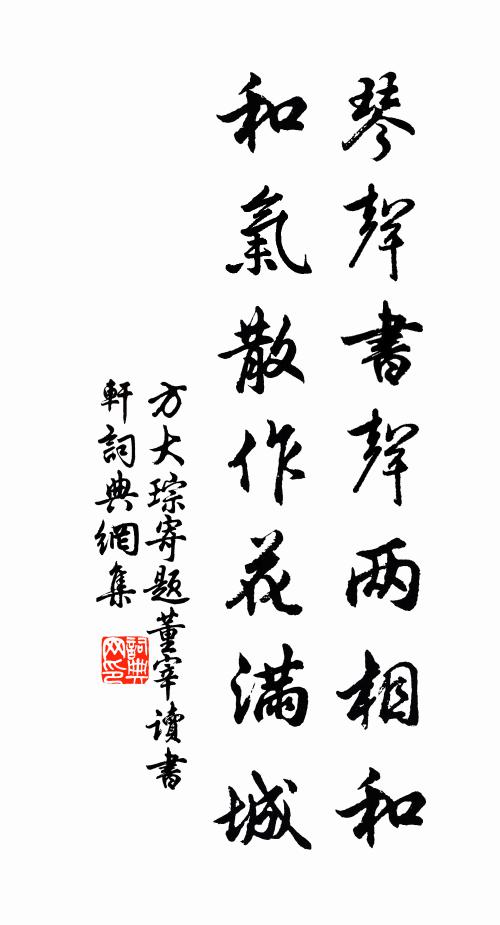 琴聲書聲两相和
和氣散作花滿城
方大琮寄題董宰讀書
軒詞典網集
詞典
网印